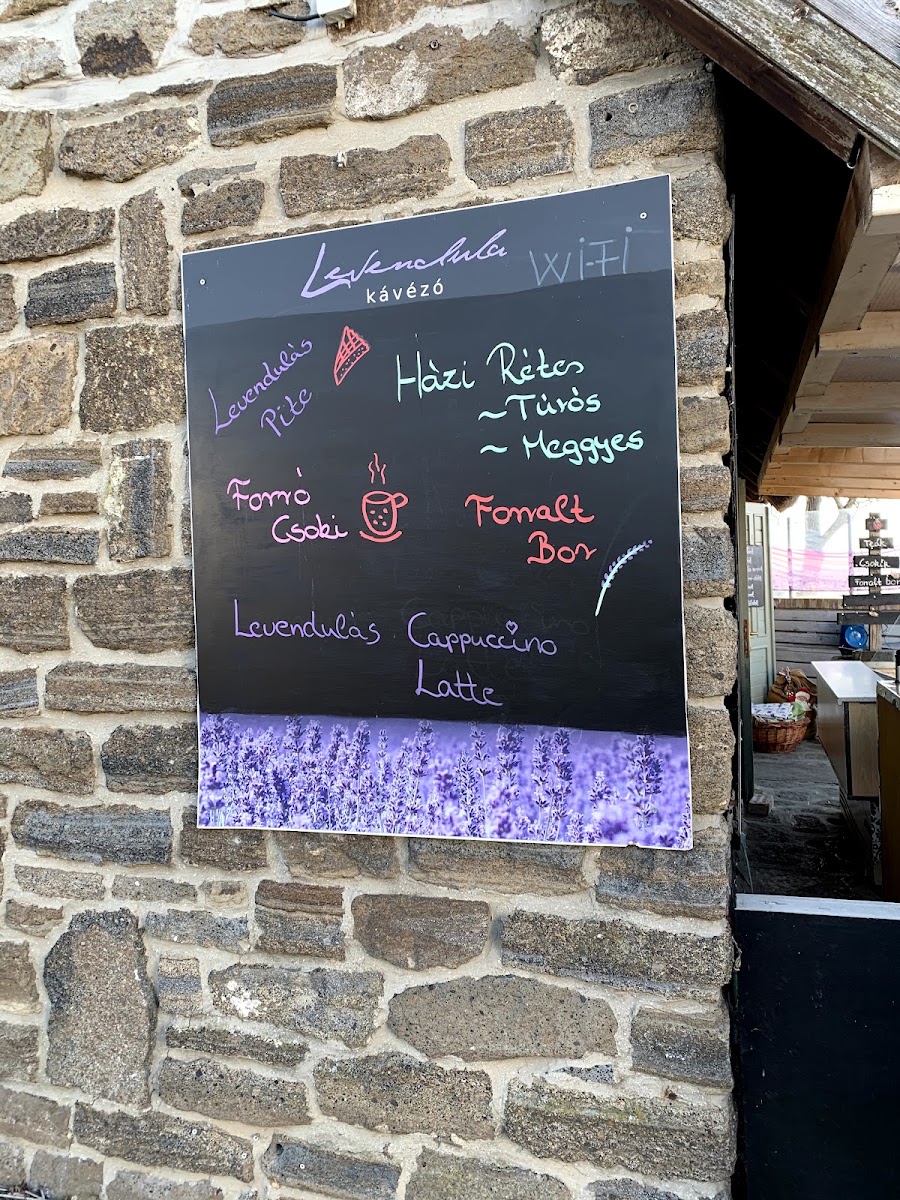 Levendula
kávézó
Wi-Fi
Levendulás
Pite
Házi Rétes
~Túrós
~ Meggyes
Forró
Csoki
Forralt
Bor
Levendulás Cappuccino
Latte
Teák
Csokik
Forralt bor